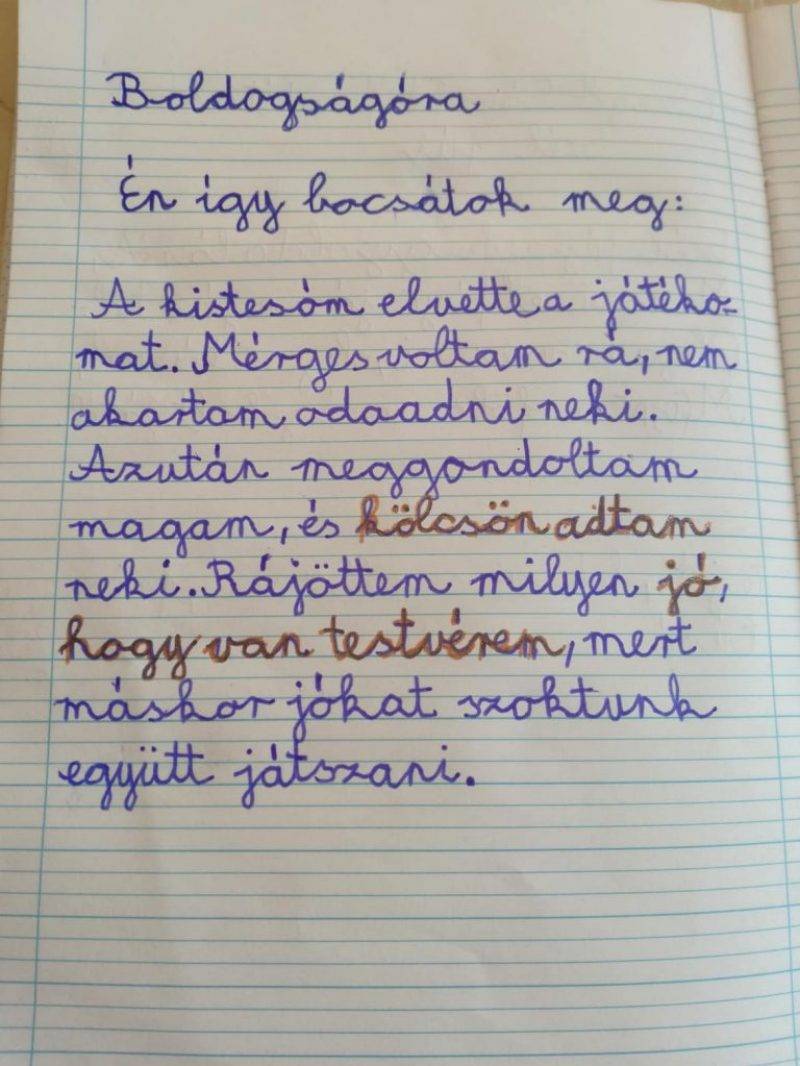 Boldogságóra
Én így bocsátok meg:
A kistesóm elvette a játéko-
mat. Mérges voltam rá, nem
akartam odaadni neki.
Azután meggondoltam
magam, és kölcsön adtam
neki. Rájöttem milyen jó,
hogy van testvérem, mert
máskor jókat szoktunk
együtt játszani.